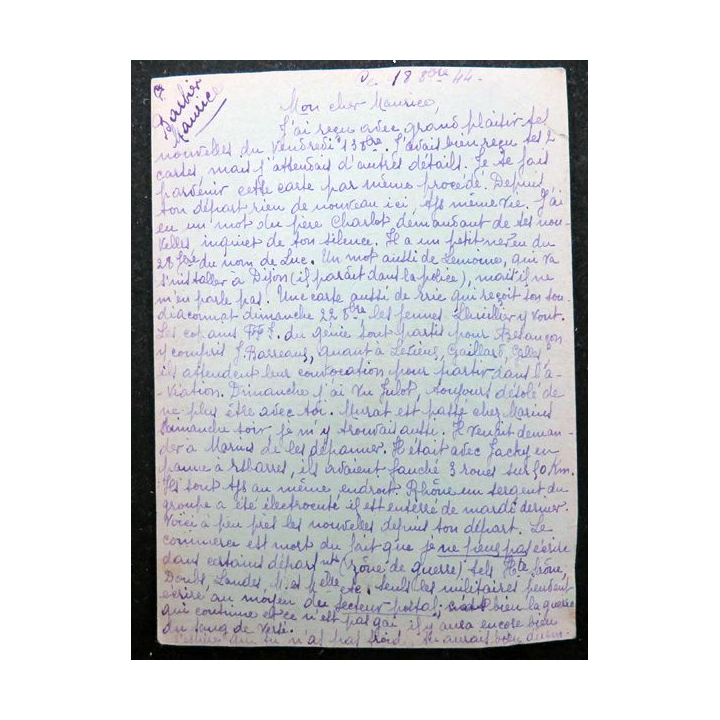 Barbier
Maurice
18 8bre 44.
Mon cher Maurice,
J'ai reçu avec grand plaisir tes
nouvelles du Vendredi 13 8bre. J'avais bien reçu tes 2
cartes mais j'attendais d'autres détails. Je te fais
parvenir cette carte par même procédé. Depuis
ton départ rien de nouveau ici tjs même vie. J'ai
eu un mot du père Charlot demandant de tes nou-
velles inquiet de ton silence. Il a un petit neveu du
28 7bre du nom de Luc. Un mot aussi de Lemoine, qui va
s'installer à Dijon (il paraît dans la police), mais il ne
m'en parle pas. Une carte aussi de qui reçoit son sou
diaconat dimanche 22 8bre les jeunes y vont.
Les copains FFI. du génie sont partis pour Besançon
y compris J. Barreaus, quant à Gaillard,
ils attendent leur convocation pour partir dans l'a-
viation. Dimanche j'ai vu Julot, toujours désolé de
ne plus être avec toi. Murat est passé chez Marius
dimanche soir je m'y trouvais aussi. Il venait deman-
der à Marius de les dépanner. Il était avec Jacky en
panne à , ils avaient fauché 3 roues sur 50 Km.
Ils sont tjs au même endroit. Rhône un sergent du
groupe a été électrocuté il est enterré de mardi dernier.
Voici à peu près les nouvelles depuis ton départ. Le
commerce est mort du fait que je ne peux pas écrire
dans certains départ nts (zône de guerre) tels Hte Saône
Doubs, Landes, etc. seuls les militaires peuvent
écrire au moyen du secteur postal. bien la guerre
qui continue et ce n'est pas gai il y aura encore bien
du sang de versé.
que tu n'as pas froid, tu aurais bien